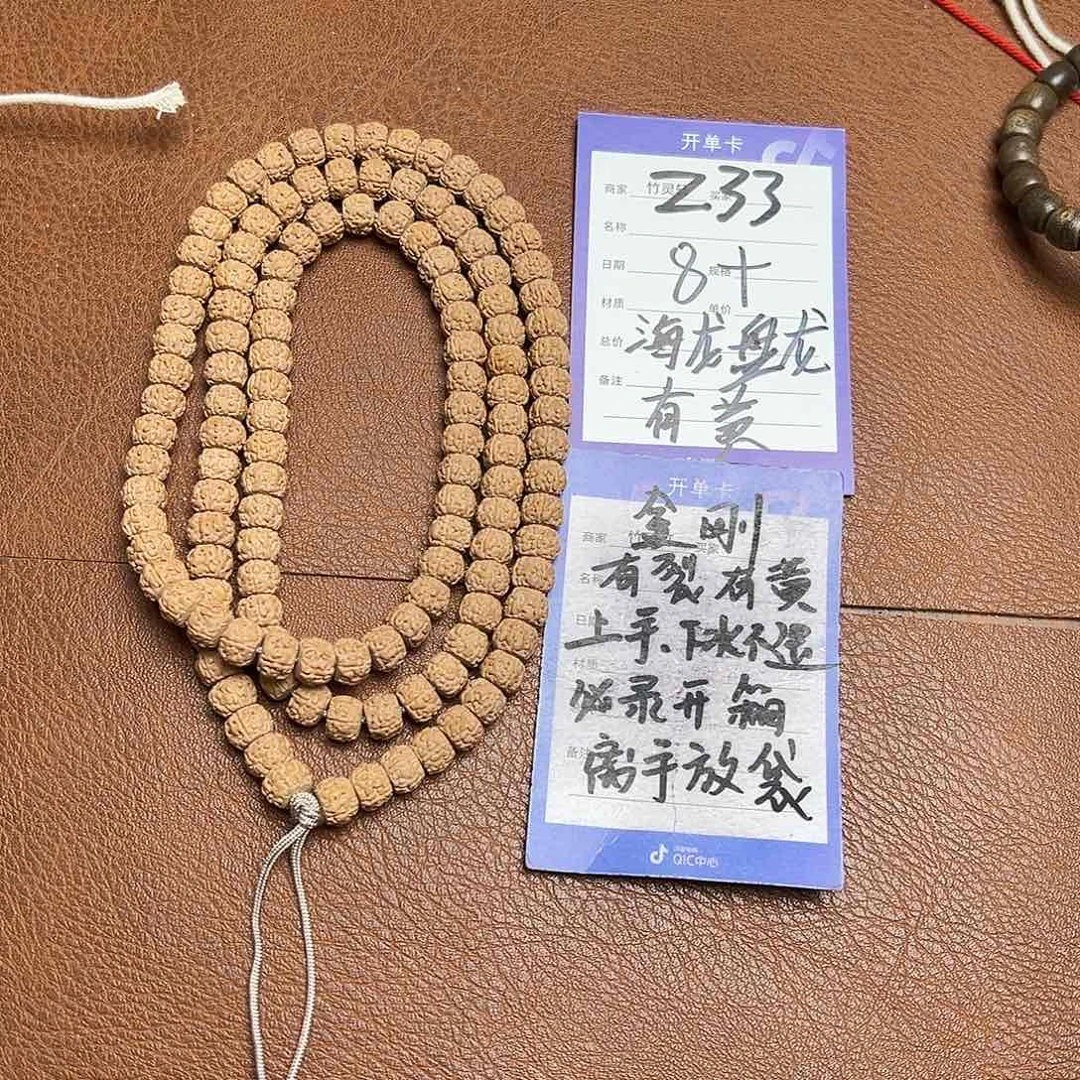 开单卡
商家 竹灵轩 买家
Z33
名称
日期 规格
8十
材质 单价
总价
海龙盘龙
备注
有黄
开单卡
金刚
商家 竹
名称
有裂有黄
日期
上手、下水不退
材质
必录开箱
备注
离手放袋
QIC中心